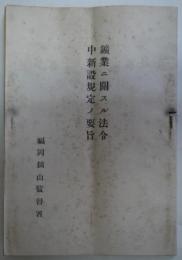 鑛業ニ關スル法令
中新設規定ノ要旨
福岡鑛山監督署